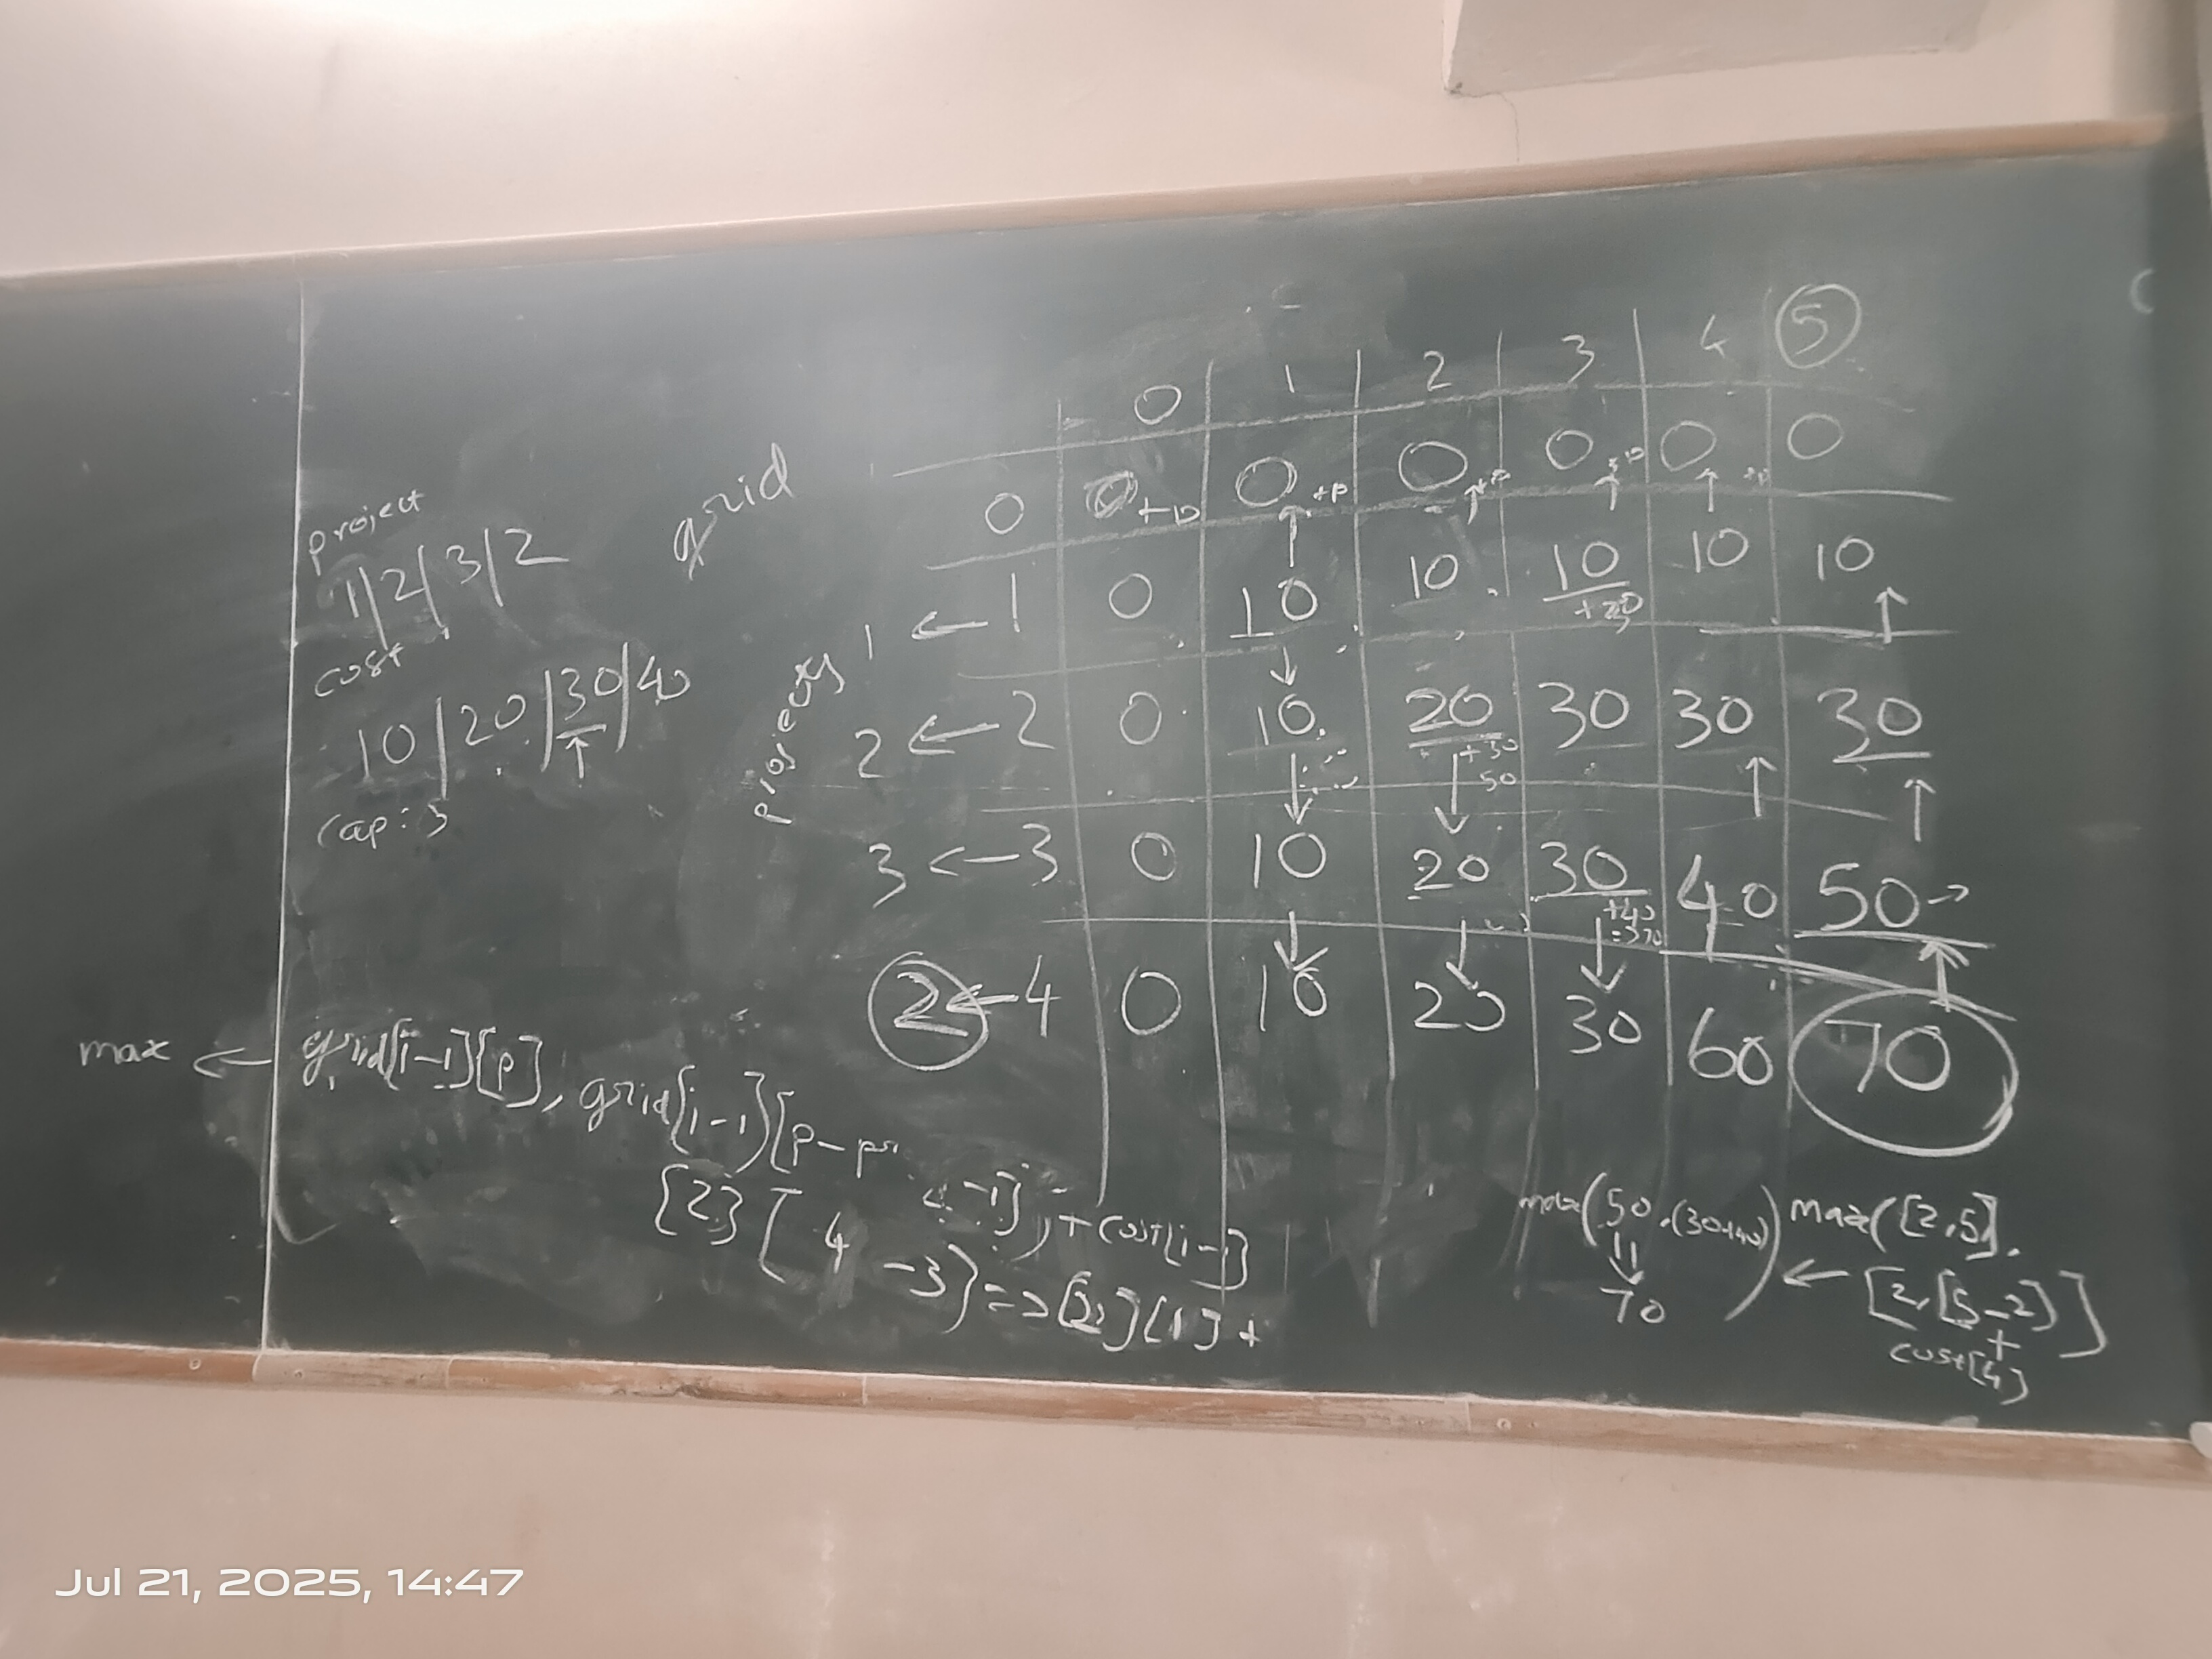 project
1|2|3|2
cost
10|20|30|40
↑
cap: 5
grid
projects
0 1 2 3 4 5
0 0 +10 0 +10 0 0 0 0
1 ← 1 0 10 10 10 10 10
+20
2 ← 2 0 10 20 30 30 30
+30
50
3 ← 3 0 10 20 30 40 50 →
+40
=70
2 ← 4 0 10 20 30 60 70
max ← grid[i-1][p], grid[i-1][p-
[i-1]) + cost[i-1]
[2][4-3] => [2][1] +
max(50,(30+40)) max([2,5],
↓
70
← [2,[5-2]]
+
cost[4]
Jul 21, 2025, 14:47